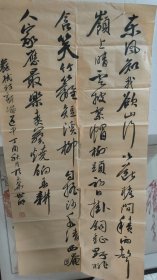 东风知我欲山行吹断檐间积雨声
岭上晴云披絮帽树头初日挂铜钲野桃
含笑竹篱短溪柳自摇沙水清西崦
人家应最乐煮芹烧笋饷春耕